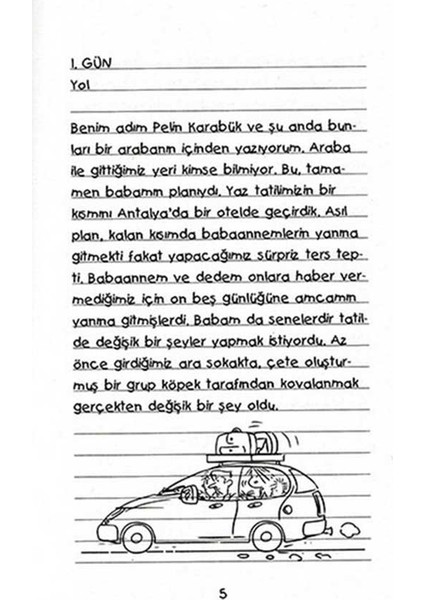 1. GÜN
Yol
Benim adım Pelin Karabük ve şu anda bun-
ları bir arabanın içinden yazıyorum. Araba
ile gittiğimiz yeri kimse bilmiyor. Bu, tama-
men babamın planıydı. Yaz tatilimizin bir
kısmını Antalya'da bir otelde geçirdik. Asıl
plan, kalan kısımda babaannemlerin yanına
gitmekti fakat yapacağımız sürpriz ters tep-
ti. Babaannem ve dedem onlara haber ver-
mediğimiz için on beş günlüğüne amcamın
yanına gitmişlerdi. Babam da senelerdir tatil-
de değişik bir şeyler yapmak istiyordu. Az
önce girdiğimiz ara sokakta, çete oluştur-
muş bir grup köpek tarafından kovalanmak
gerçekten değişik bir şey oldu.
5